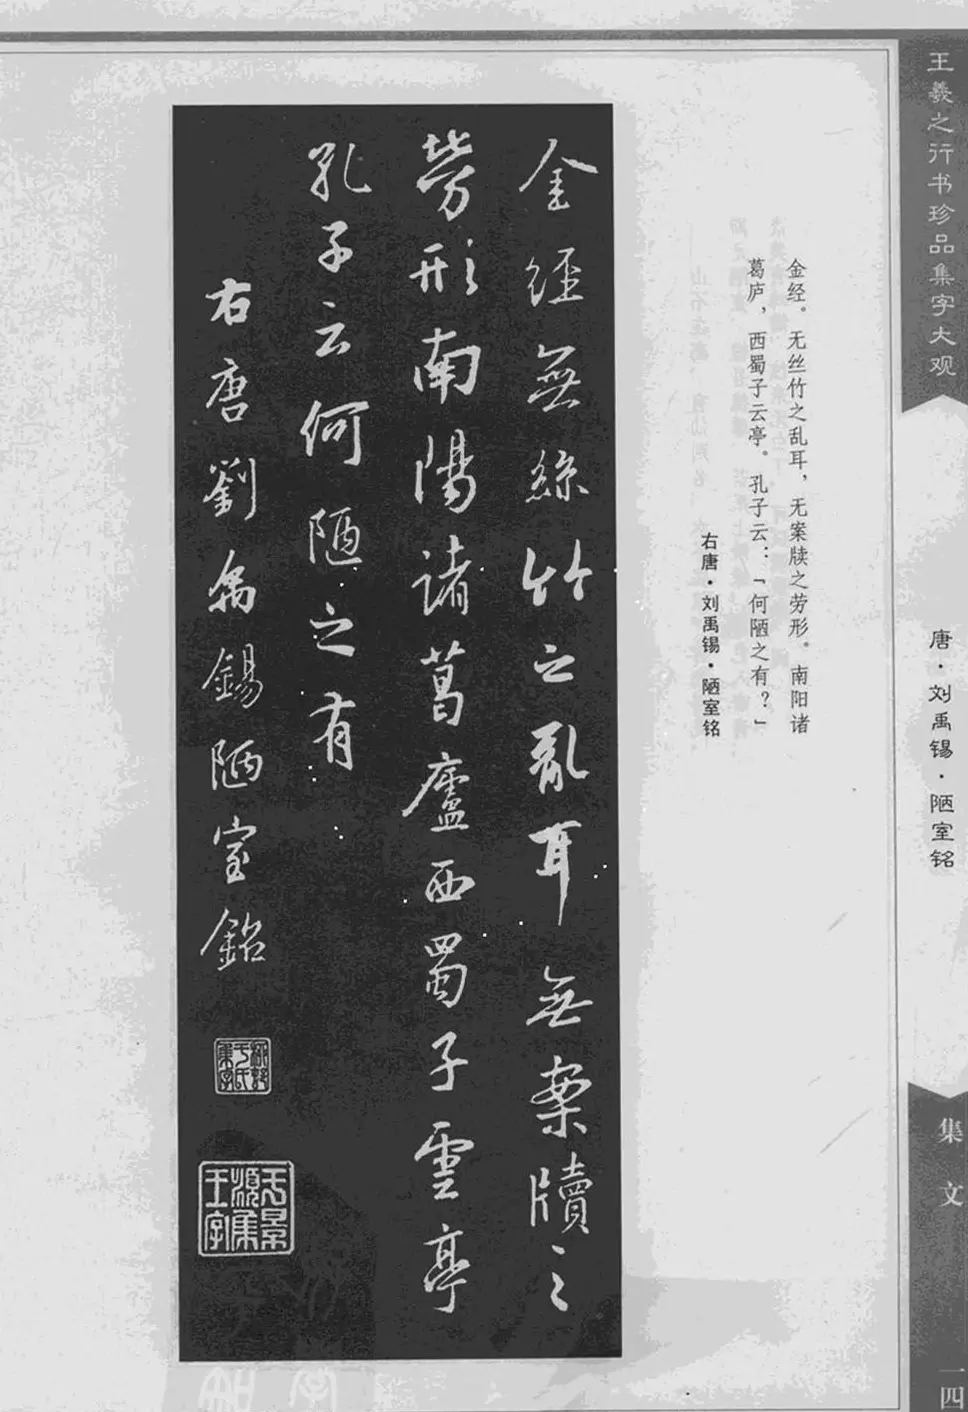 王羲之行书珍品集字大观
唐·刘禹锡·陋室铭
集文
一四
金经。无丝竹之乱耳，无案牍之劳形。南阳诸
葛庐，西蜀子云亭。孔子云：「何陋之有？」
右唐·刘禹锡·陋室铭
金經無絲竹之亂耳無案牘之
勞形南陽諸葛廬西蜀子雲亭
孔子云何陋之有
右唐劉禹錫陋室銘